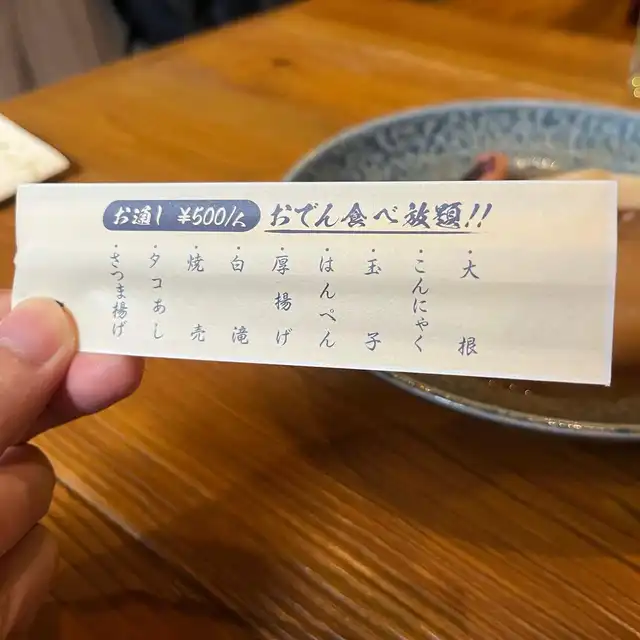 お通し ¥500/人
おでん食べ放題!!
・大根
・こんにゃく
・玉子
・はんぺん
・厚揚げ
・白滝
・焼売
・タコあし
・さつま揚げ